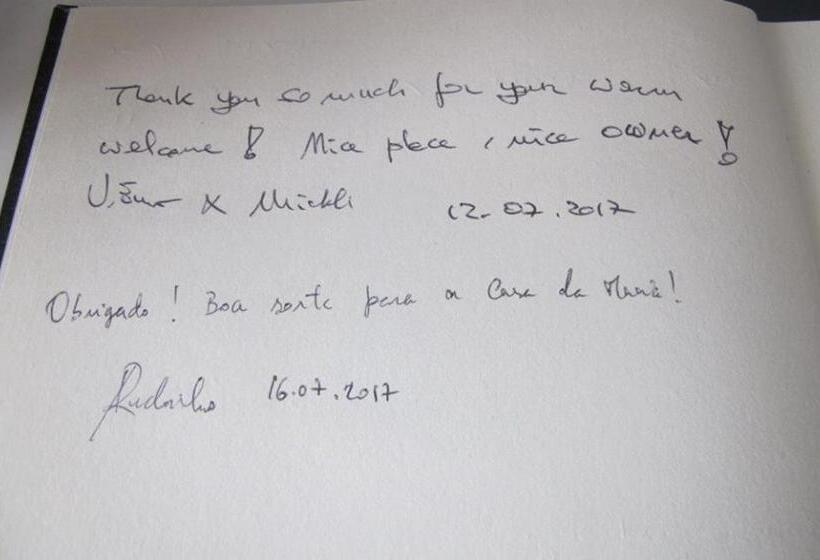 Thank you so much for your warm
welcome! Nice place, nice owner!
& Mickli 12.07.2017
Obrigado! Boa sorte para a Casa da
16.07.2017